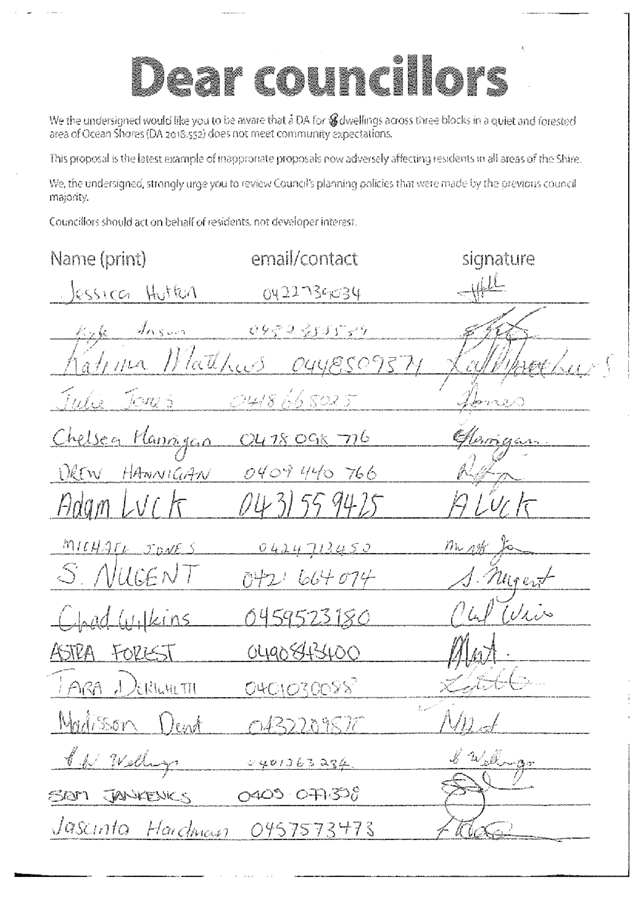 Dear councillors
We the undersigned would like you to be aware that a DA for 8 dwellings across three blocks in a quiet and forested
area of Ocean Shores (DA 2018.552) does not meet community expectations.
This proposal is the latest example of inappropriate proposals now adversely affecting residents in all areas of the Shire.
We, the undersigned, strongly urge you to review Council's planning policies that were made by the previous council
majority.
Councillors should act on behalf of residents, not developer interest.
Name (print) email/contact signature
Jessica Hutton 0422739034
Kyle
Katrina Matthews 0448509371 Matthews
Julie Jones 0418668025 Jones
Chelsea Hannigan 0478 098 776 Hannigan
DREW HANNIGAN 0409 440 766
Adam LUCK 0431559425 A LUCK
MICHAEL JONES 0424713450
S. NUGENT 0421 664 074 S. Nugent
Chad Wilkins 0459523180
ASTRA FOREST 0490843400
TARA 0401030098
Madisson Dent
Wellings 0401363284 Wellings
SAM JANKENKS 0405 077 398
Jascinta Hardman 0457573473